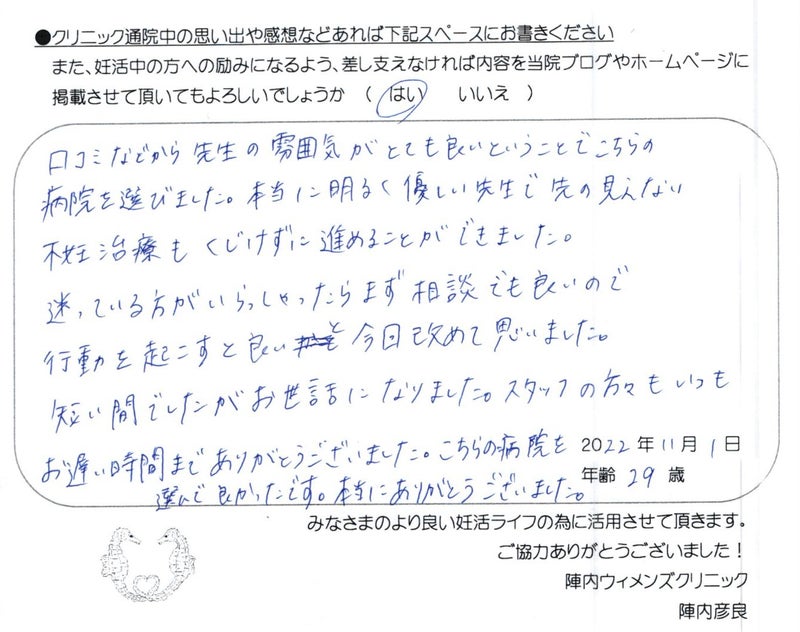 ●クリニック通院中の思い出や感想などあれば下記スペースにお書きください
また、妊活中の方への励みになるよう、差し支えなければ内容を当院ブログやホームページに
掲載させて頂いてもよろしいでしょうか （ はい　いいえ ）
口コミなどから先生の雰囲気がとても良いということでこちらの
病院を選びました。本当に明るく優しい先生で先の見えない
不妊治療もくじけずに進めることができました。
迷っている方がいらっしゃったらまず相談でも良いので
行動を起こすと良いと今回改めて思いました。
短い間でしたがお世話になりました。スタッフの方々もいつも
お遅い時間までありがとうございました。こちらの病院を
選んで良かったです。本当にありがとうございました。
2022年11月1日
年齢 29 歳
みなさまのより良い妊活ライフの為に活用させて頂きます。
ご協力ありがとうございました！
陣内ウィメンズクリニック
陣内彦良